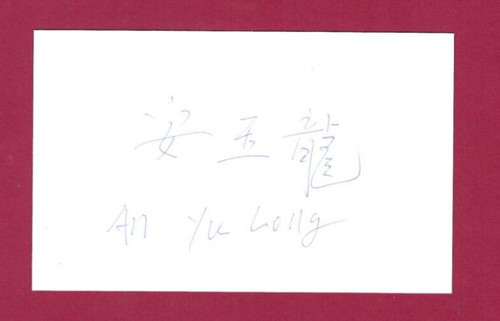 安玉龍
An Yu Long